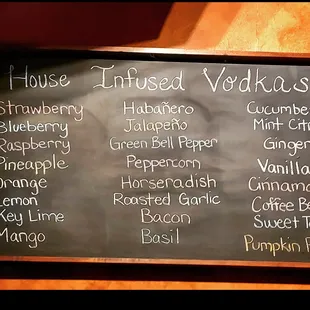 House Infused Vodkas
Strawberry Habañero Cucumbe
Blueberry Jalapeño Mint Citr
Raspberry Green Bell Pepper Ginger
Pineapple Peppercorn Vanilla
Orange Horseradish Cinnamo
Lemon Roasted Garlic Coffee Be
Key Lime Bacon Sweet T
Mango Basil Pumpkin P